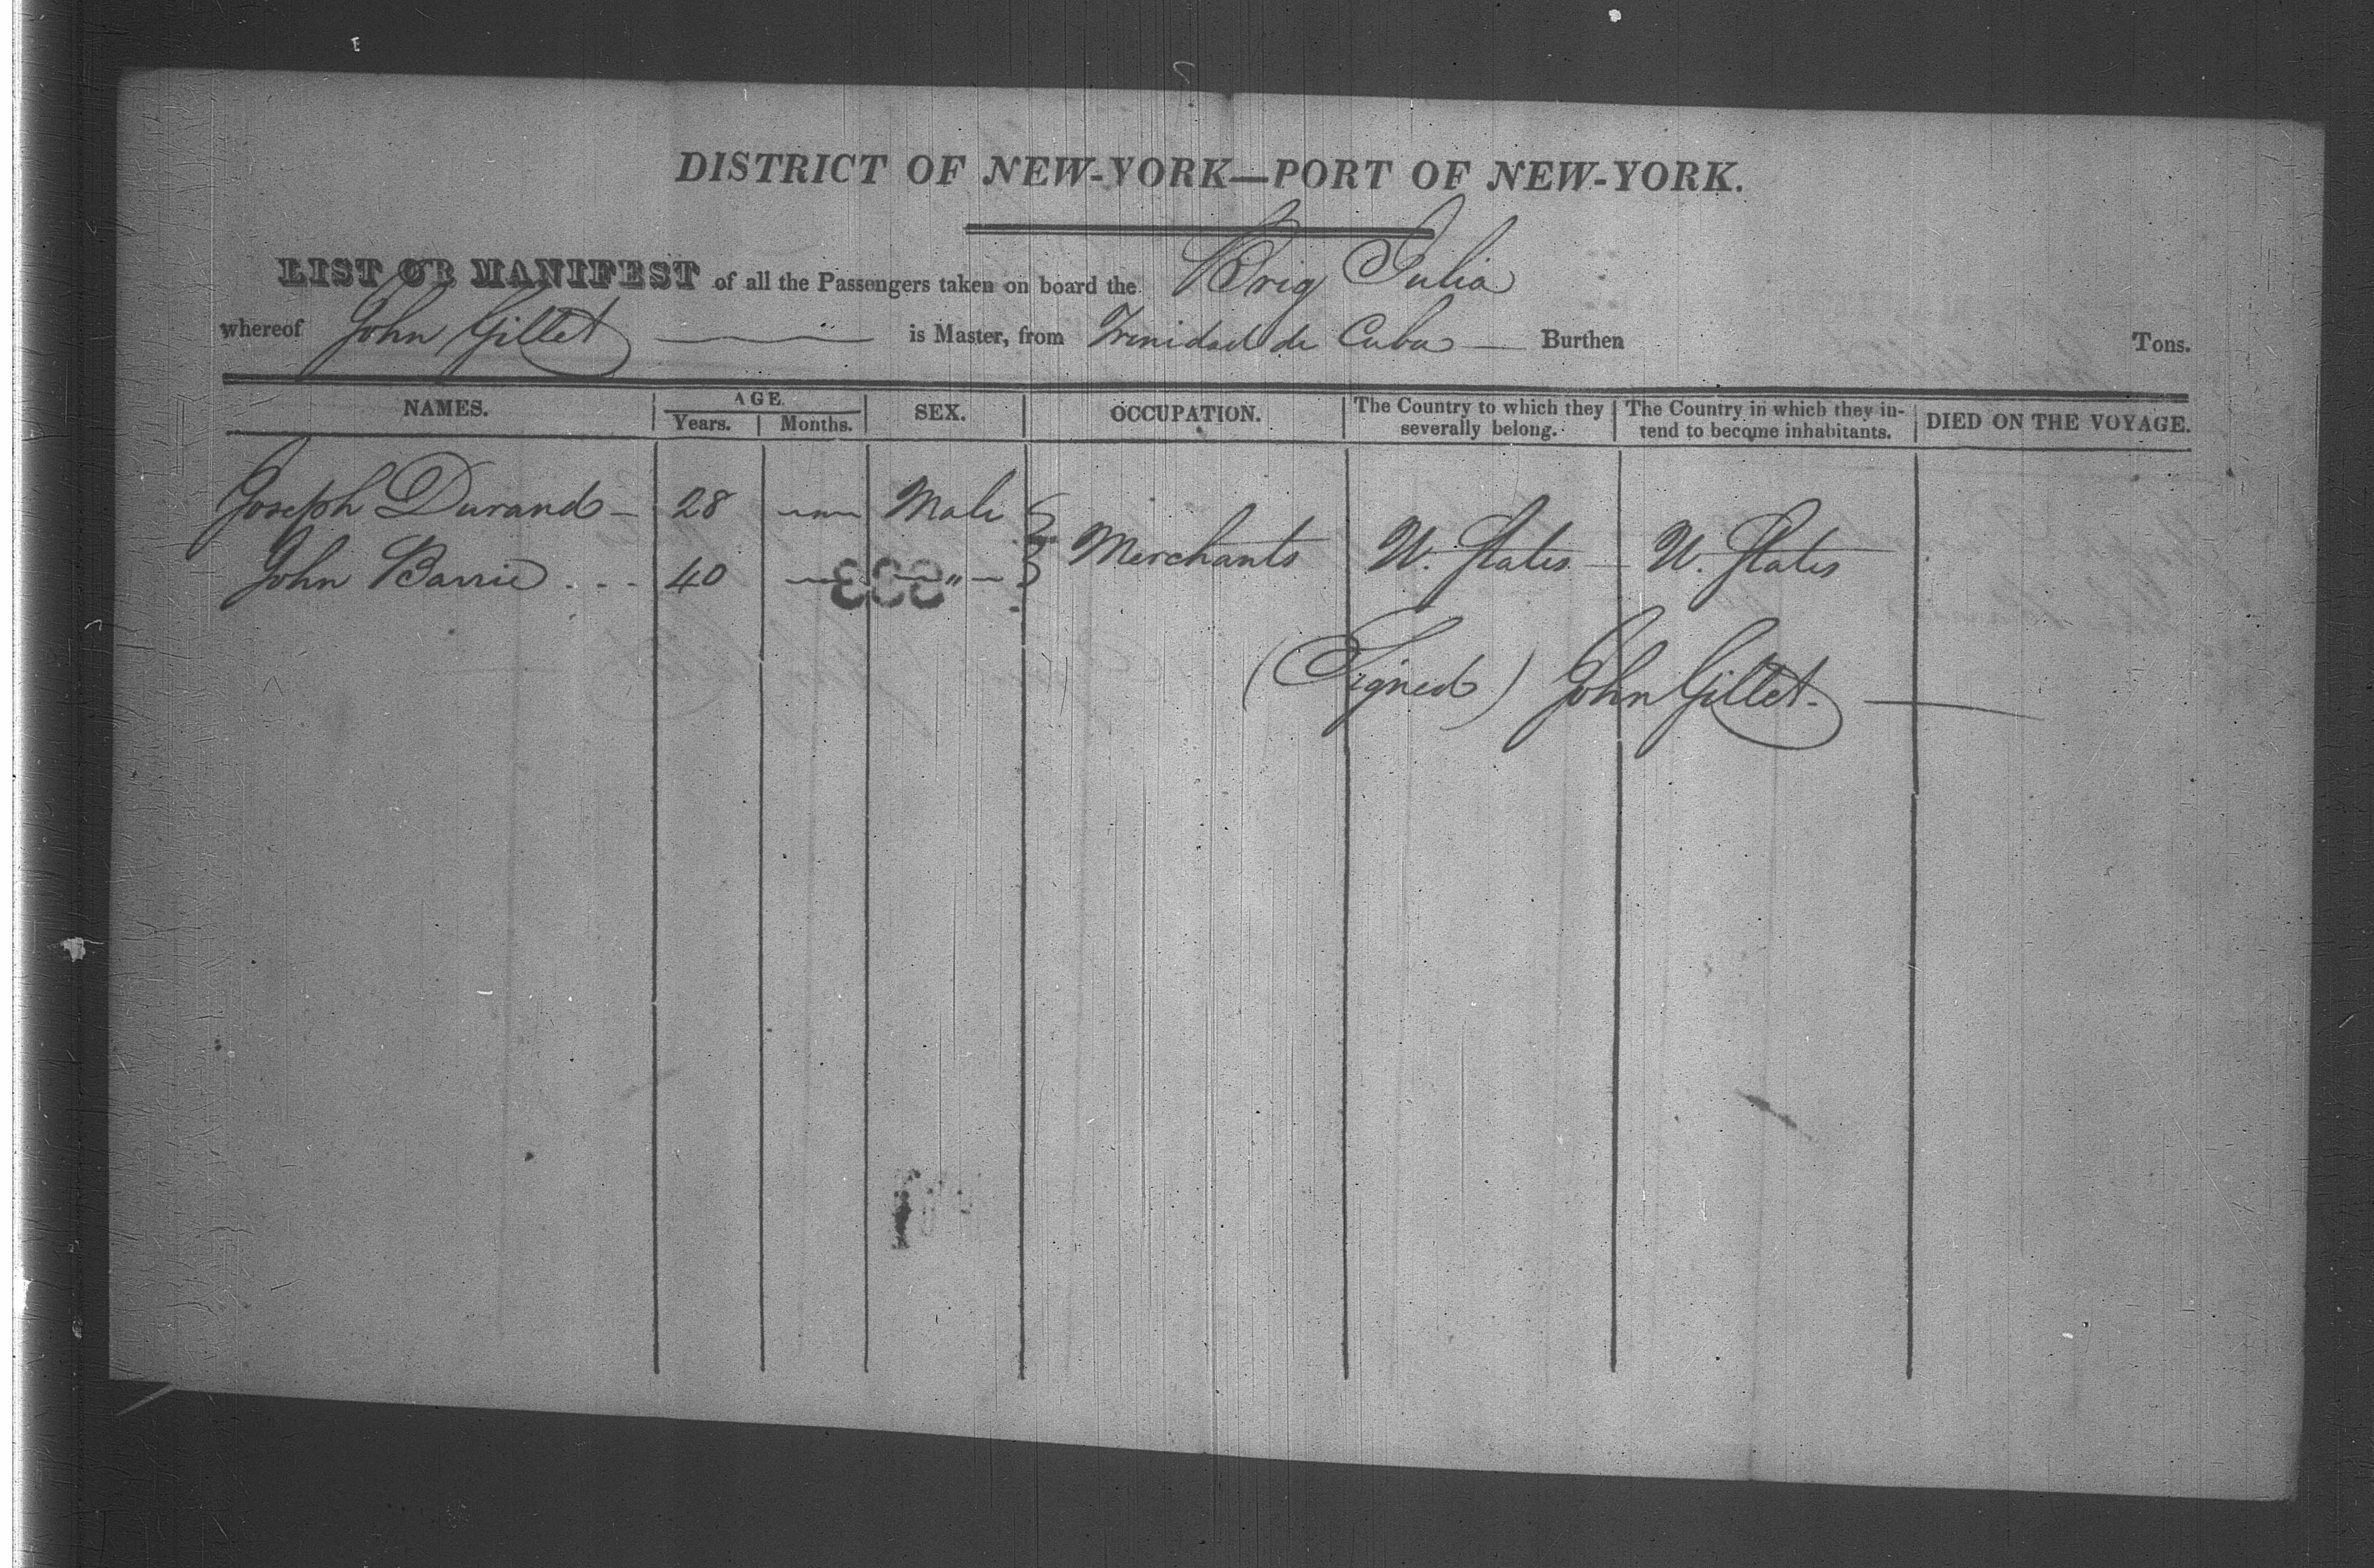 DISTRICT OF NEW-YORK—PORT OF NEW-YORK.
LIST OR MANIFEST of all the Passengers taken on board the Brig Julia
whereof John Gillet is Master, from Trinidad de Cuba — Burthen Tons.
NAMES. AGE Years. Months. SEX. OCCUPATION. The Country to which they severally belong. The Country in which they intend to become inhabitants. DIED ON THE VOYAGE.
Joseph Durand — 28 — Male
Merchants U. States — U. States
John Barrie . . . 40 — „ —
(Signed) John Gillet. —